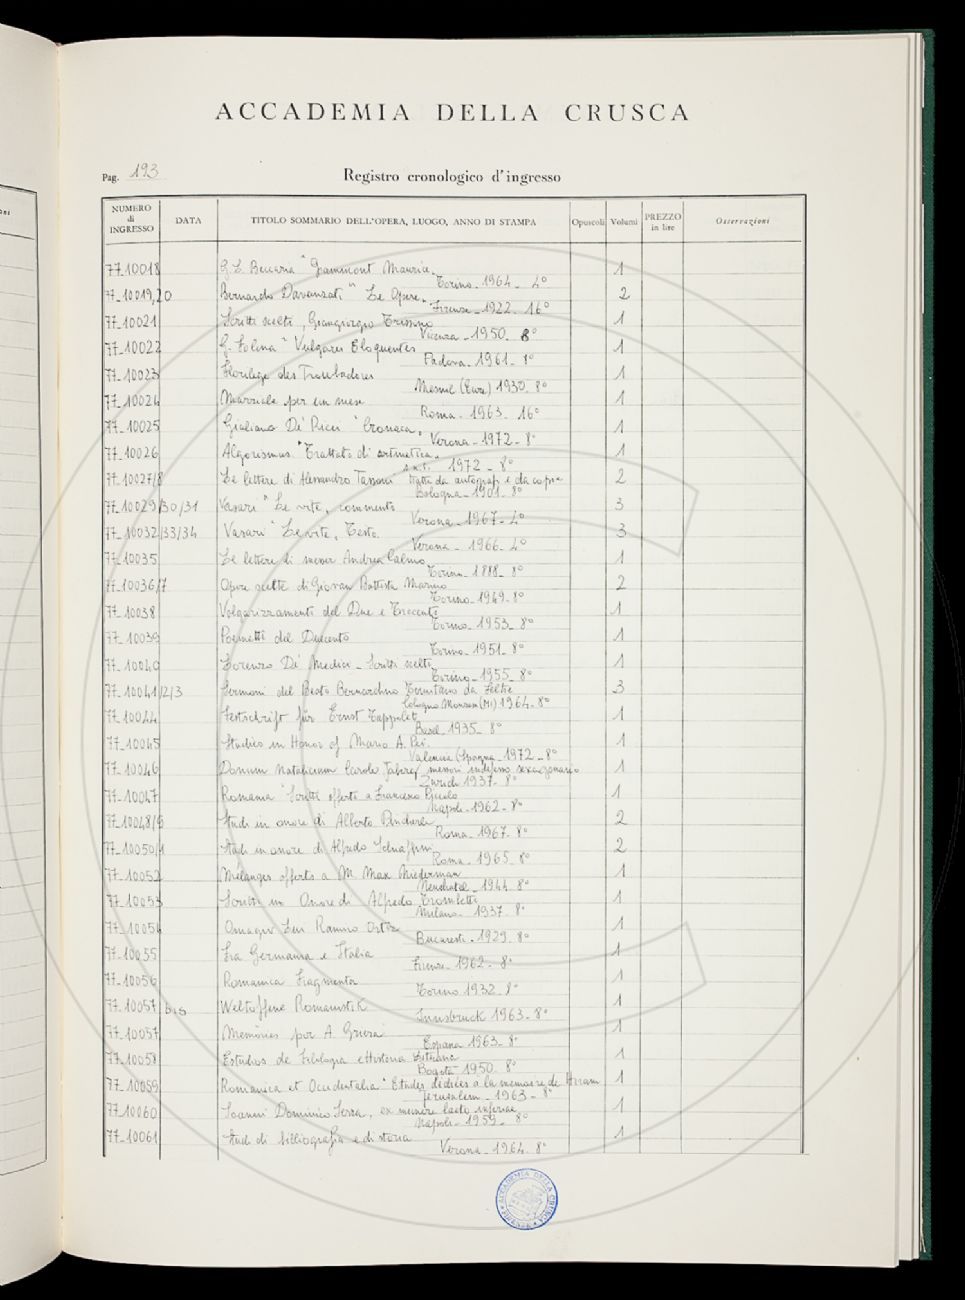 ACCADEMIA DELLA CRUSCA
Pag. 193
Registro cronologico d'ingresso
NUMERO di INGRESSO DATA TITOLO SOMMARIO DELL'OPERA, LUOGO, ANNO DI STAMPA Opuscoli Volumi PREZZO in lire Osservazioni
77-10018 G. B. Beccaria "Grammont Maurice, 1
Torino - 1964 - 4°
77-10019,20 Bernardo Davanzati "Le Opere, 2
Firenze - 1922 - 16°
77-10021 Scritti scelti, Giangiorgio Trissino 1
Vicenza - 1950 - 8°
77-10022 G. Folena "Vulgares Eloquentes 1
Padova - 1961 - 1°
77-10023 Florilege des Troubadores 1
Mesnil (Eure) 1930 - 8°
77-10024 Manuale per un mese 1
Roma - 1963 - 16°
77-10025 Giuliano De' Ricci "Cronaca, 1
Verona - 1972 - 8°
77-10026 Algorismus "Trattato di aritmetica, 1
s.n.t. 1972 - 8°
77-10027/8 Le lettere di Alessandro Tassoni tratte da autografi e da copie 2
Bologna - 1901 - 8°
77-10029/30/31 Vasari "Le vite, commento 3
Verona - 1967 - 4°
77-10032/33/34 Vasari "Le vite, Testo. 3
Verona - 1966 - 4°
77-10035 Le lettere di messer Andrea Calmo 1
Torino - 1888 - 8°
77-10036/7 Opere scelte di Giovan Battista Marino 2
Torino - 1949 - 8°
77-10038 Volgarizzamenti del Due e Trecento 1
Torino - 1953 - 8°
77-10039 Poemetti del Duecento 1
Torino - 1951 - 8°
77-10040 Lorenzo De' Medici - Scritti scelti 1
Torino - 1955 - 8°
77-10041/2/3 Sermoni del Beato Bernardino Tomitano da Feltre 3
Cologno Monzese (MI) 1964 - 8°
77-10044 Festschrift für Ernst Tappolet 1
Basel - 1935 - 8°
77-10045 Studies in Honor of Mario A. Pei. 1
Valencia (Spagna - 1972 - 8°
77-10046 Donum Natalicium Carolo Jaberg messori indefesso sexagenario 1
Zurich 1937 - 8°
77-10047 Romania "Scritti offerti a Francesco Piccolo 1
Napoli - 1962 - 8°
77-10048/9 Studi in onore di Alberto Pincherle 2
Roma - 1967 - 8°
77-10050/1 Studi in onore di Alfredo Schiaffini 2
Roma - 1965 - 8°
77-10052 Mélanges offerts a M. Max Niederman 1
Neuchatel - 1944 - 8°
77-10053 Scritti in Onore di Alfredo Trombetti 1
Milano - 1937 - 8°
77-10054 Omagiu lui Ramiro Ortiz 1
Bucaresti - 1929 - 8°
77-10055 Fra Germania e Italia 1
Firenze - 1962 - 8°
77-10056 Romanica Fragmenta 1
Torino 1932 - 8°
77-10057 bis Weltoffene Romanistik 1
Innsbruck 1963 - 8°
77-10057 Memories por A. Griera 1
Espana 1963 - 8°
77-10058 Estudios de Filologia e Historia Literaria 1
Bogotà - 1950 - 8°
77-10059 Romanica et Occidentalia "Etudes dédiées à la memoire de Hiram 1
Jerusalem - 1963 - 8°
77-10060 Ioanni Dominico Serra, ex munere laeto inferiae 1
Napoli - 1959 - 8°
77-10061 Studi di bibliografia e di storia 1
Verona - 1964 - 8°
ACCADEMIA DELLA CRUSCA